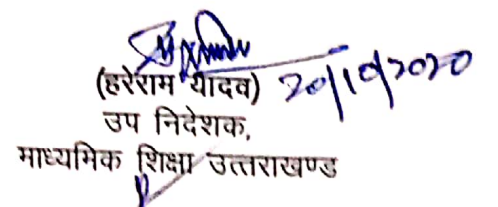 (हरेराम यादव) 20/10/2020
उप निदेशक,
माध्यमिक शिक्षा उत्तराखण्ड